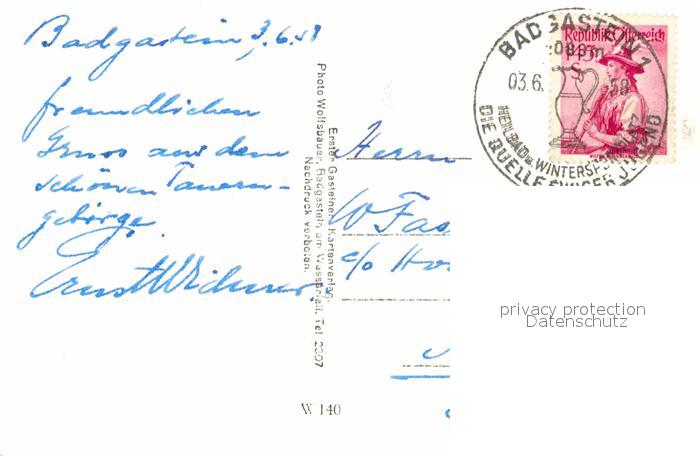 Badgastein 3.6.58
freundlichen
Gruss aus dem
schönen Tauern-
gebirge.
Ernst
Erster Gasteiner Kartenverlag
Photo Wolfsbauer, Badgastein am Wasserfall, Tel. 2307
Nachdruck verboten.
Herrn
W Fas
c/o Ho
W 140
BADGASTEIN 1
03.6. 58
HEILBAD u. WINTERSPORTPLATZ
DIE QUELLE EWIGER JUGEND
Republik Österreich
privacy protection
Datenschutz